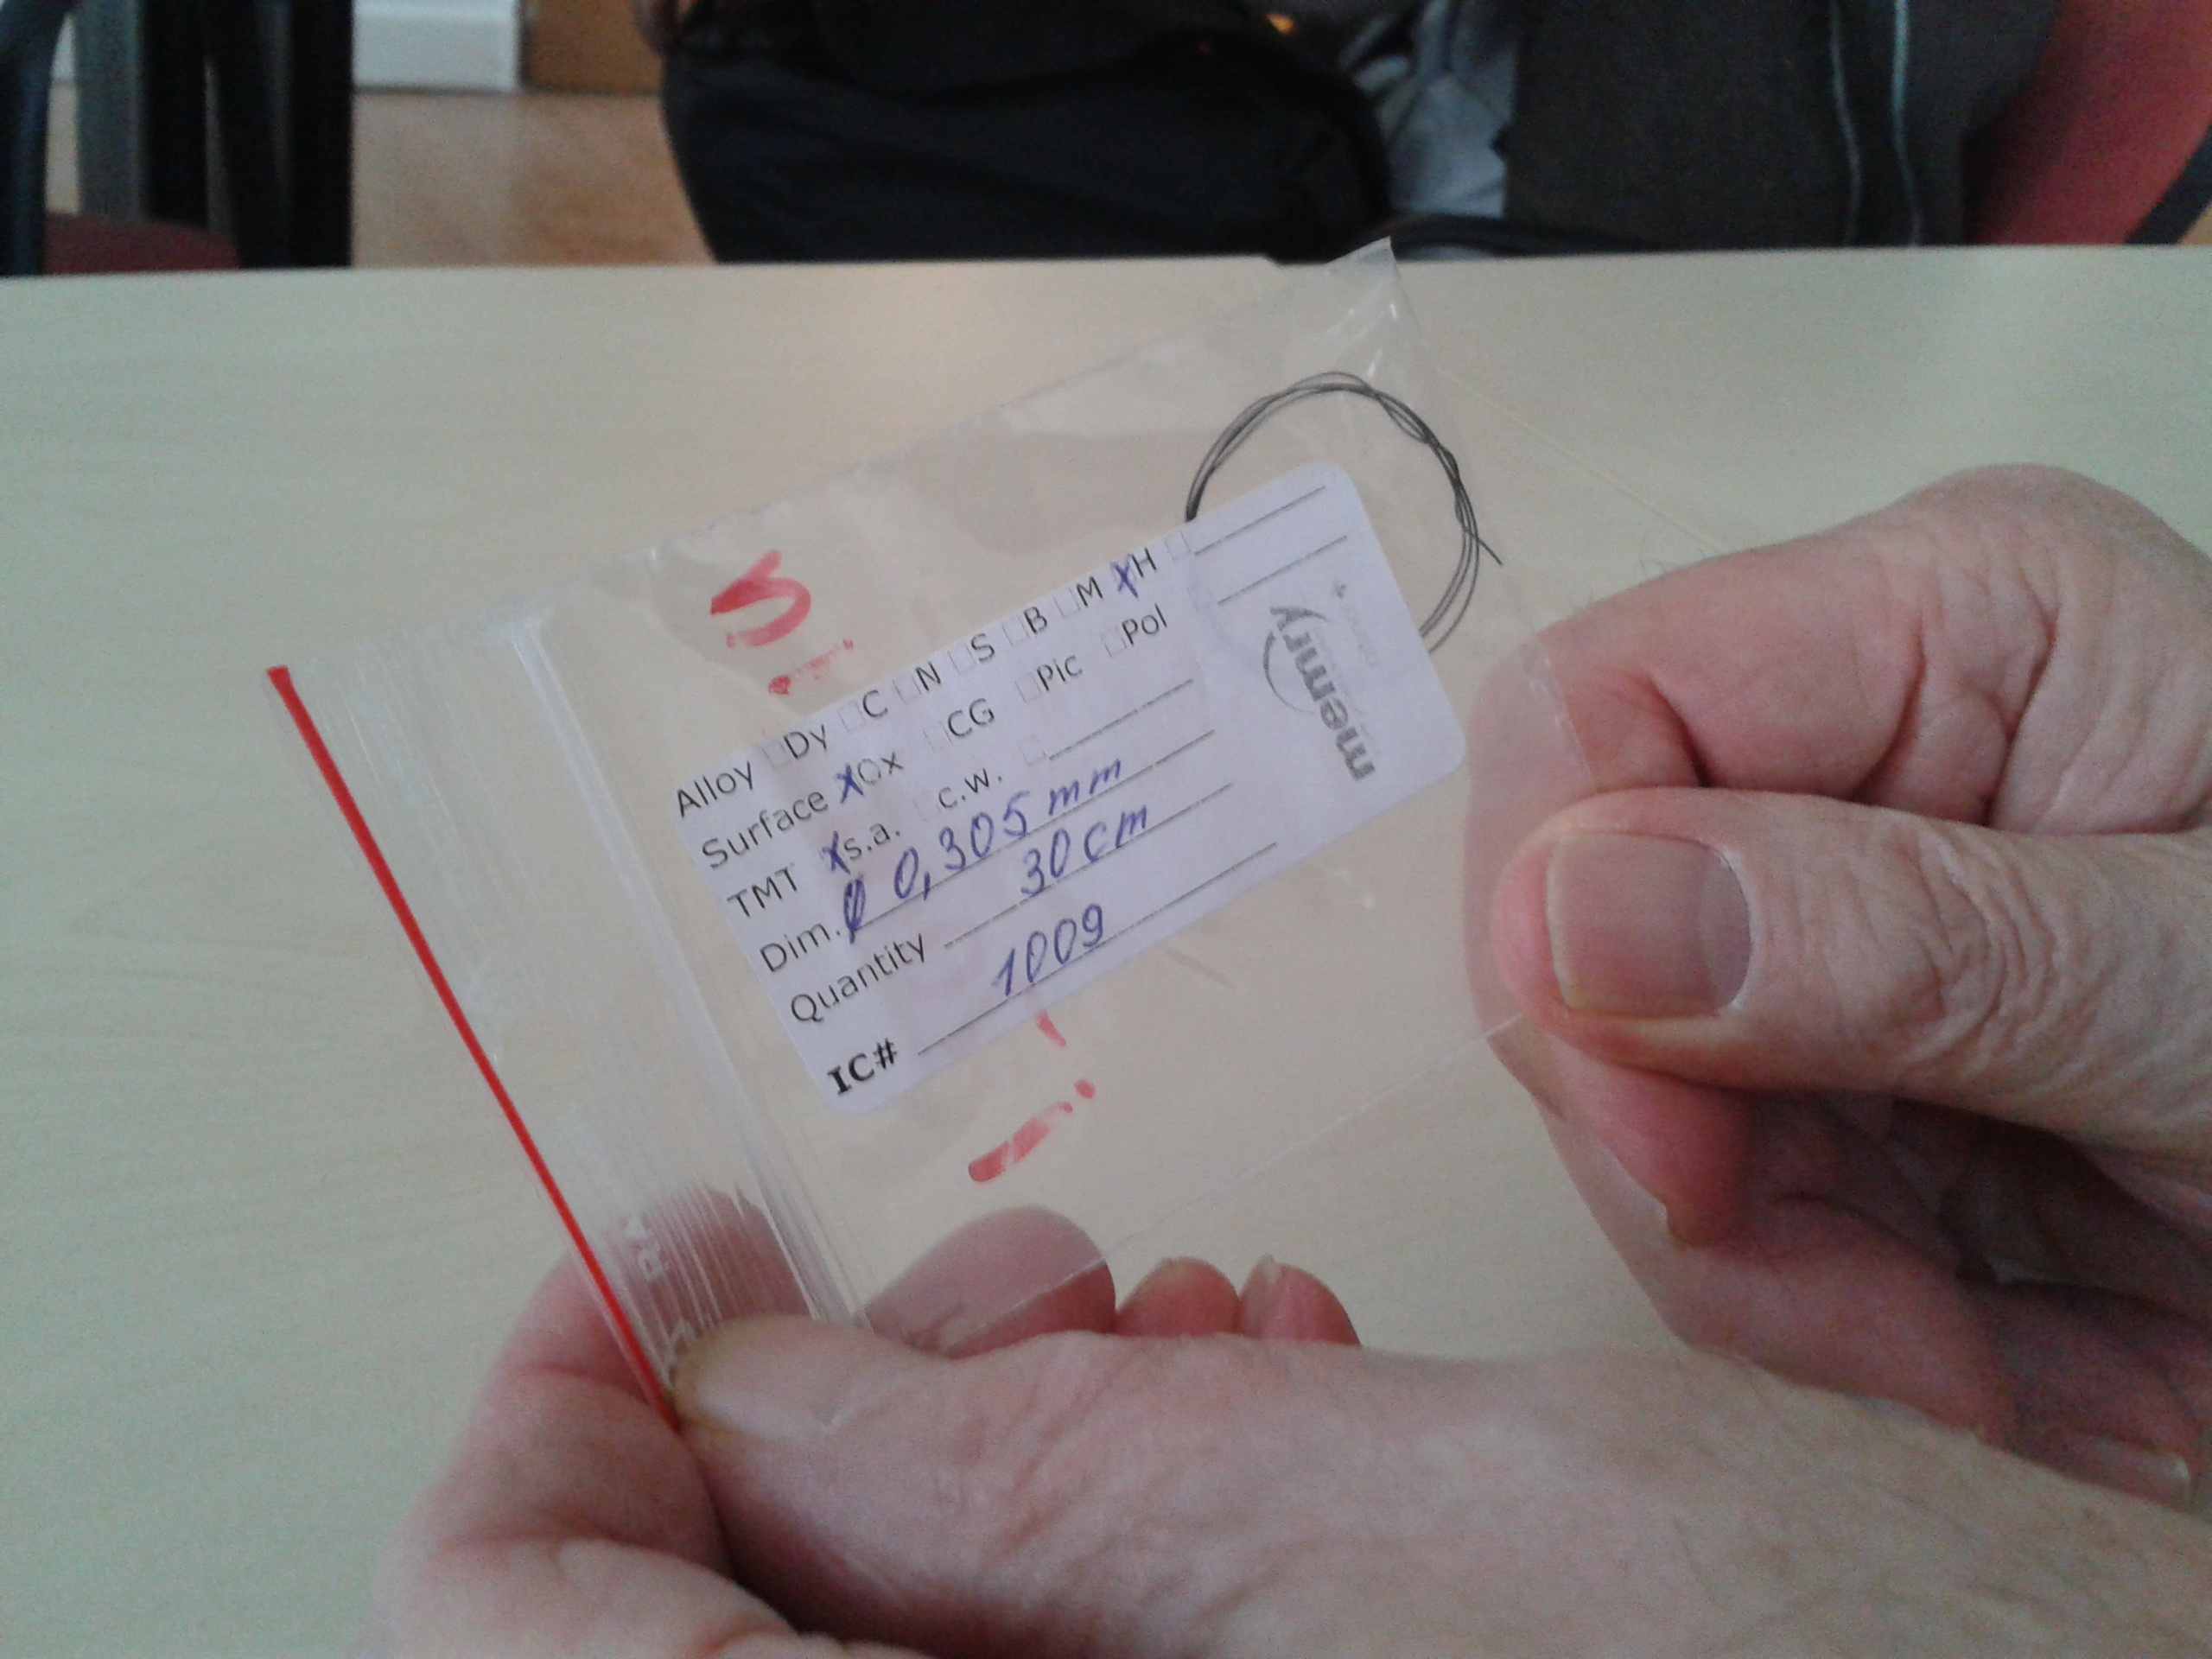 Alloy □Dy □C □N □S □B □M XH □
Surface XOx □CG □Pic □Pol □
TMT Xs.a. □c.w. □
Dim. Ø 0,305 mm
Quantity 30 cm
IC# 1009
memry